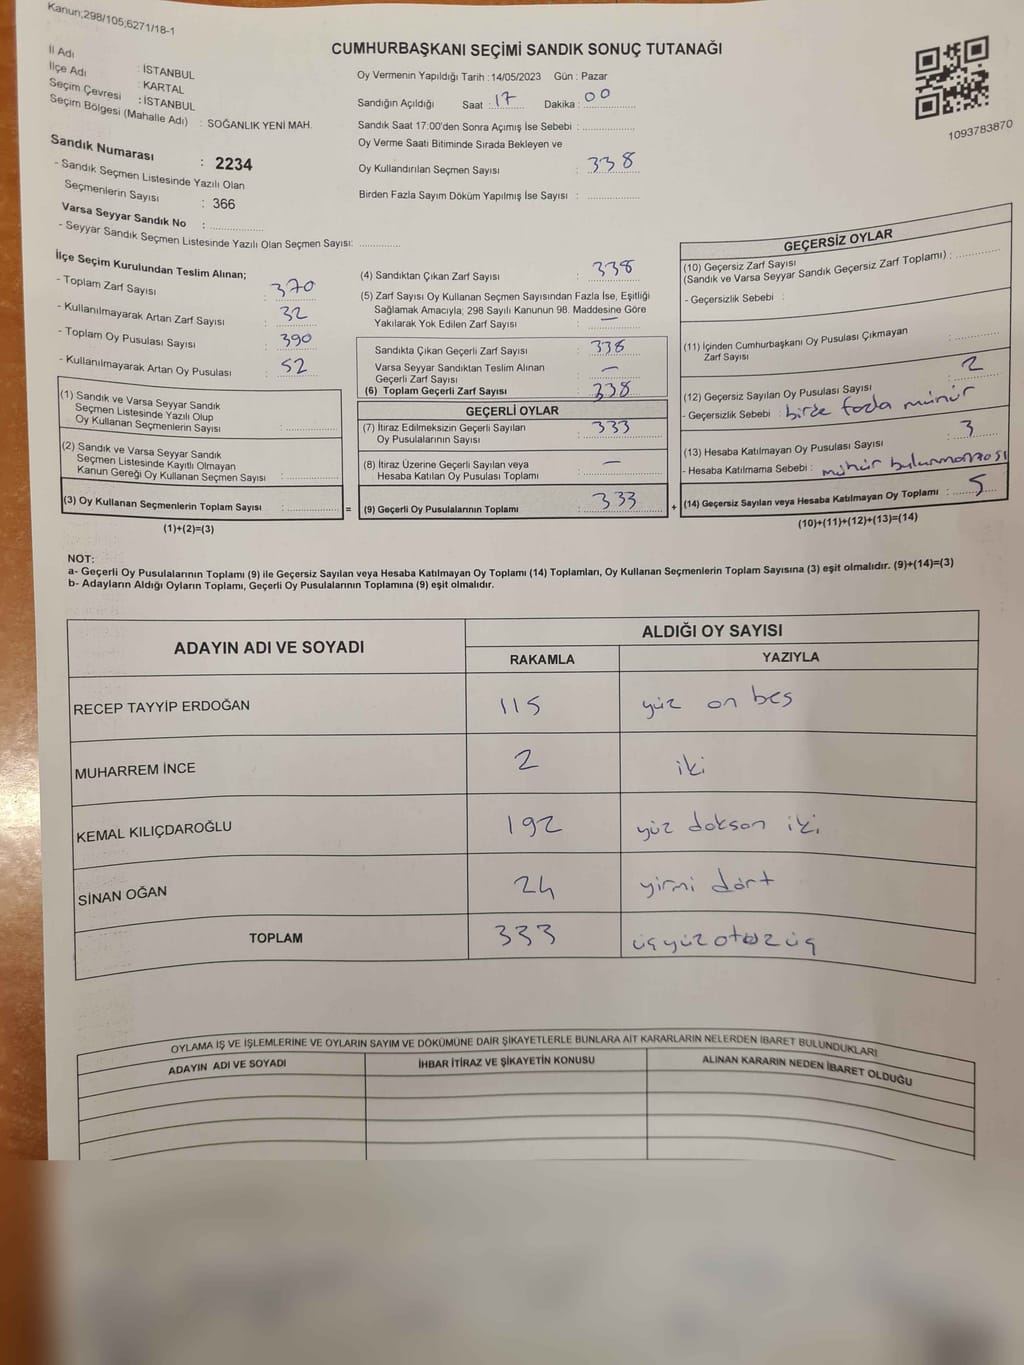 Kanun;298/105;6271/18-1
CUMHURBAŞKANI SEÇİMİ SANDIK SONUÇ TUTANAĞI
İl Adı : İSTANBUL
İlçe Adı : KARTAL
Seçim Çevresi : İSTANBUL
Seçim Bölgesi (Mahalle Adı) : SOĞANLIK YENİ MAH.
Sandık Numarası : 2234
- Sandık Seçmen Listesinde Yazılı Olan
Seçmenlerin Sayısı : 366
Varsa Seyyar Sandık No : ....................
- Seyyar Sandık Seçmen Listesinde Yazılı Olan Seçmen Sayısı: ...............
Oy Vermenin Yapıldığı Tarih : 14/05/2023 Gün : Pazar
Sandığın Açıldığı Saat : 17 Dakika : 00
Sandık Saat 17:00'den Sonra Açımış İse Sebebi : ....................
Oy Verme Saati Bitiminde Sırada Bekleyen ve
Oy Kullandırılan Seçmen Sayısı : 338
Birden Fazla Sayım Döküm Yapılmış İse Sayısı : ....................
1093783870
İlçe Seçim Kurulundan Teslim Alınan;
- Toplam Zarf Sayısı : 370
- Kullanılmayarak Artan Zarf Sayısı : 32
- Toplam Oy Pusulası Sayısı : 390
- Kullanılmayarak Artan Oy Pusulası : 52
(1) Sandık ve Varsa Seyyar Sandık
Seçmen Listesinde Yazılı Olup
Oy Kullanan Seçmenlerin Sayısı : ....................
(2) Sandık ve Varsa Seyyar Sandık
Seçmen Listesinde Kayıtlı Olmayan
Kanun Gereği Oy Kullanan Seçmen Sayısı : ....................
(3) Oy Kullanan Seçmenlerin Toplam Sayısı : ....................
(1)+(2)=(3)
=
(4) Sandıktan Çıkan Zarf Sayısı : 338
(5) Zarf Sayısı Oy Kullanan Seçmen Sayısından Fazla İse, Eşitliği
Sağlamak Amacıyla; 298 Sayılı Kanunun 98. Maddesine Göre
Yakılarak Yok Edilen Zarf Sayısı : —
Sandıkta Çıkan Geçerli Zarf Sayısı : 338
Varsa Seyyar Sandıktan Teslim Alınan
Geçerli Zarf Sayısı : —
(6) Toplam Geçerli Zarf Sayısı : 338
GEÇERLİ OYLAR
(7) İtiraz Edilmeksizin Geçerli Sayılan
Oy Pusulalarının Sayısı : 333
(8) İtiraz Üzerine Geçerli Sayılan veya
Hesaba Katılan Oy Pusulası Toplamı : —
(9) Geçerli Oy Pusulalarının Toplamı : 333
+
GEÇERSİZ OYLAR
(10) Geçersiz Zarf Sayısı
(Sandık ve Varsa Seyyar Sandık Geçersiz Zarf Toplamı) : ...............
- Geçersizlik Sebebi :
(11) İçinden Cumhurbaşkanı Oy Pusulası Çıkmayan
Zarf Sayısı : ...............
(12) Geçersiz Sayılan Oy Pusulası Sayısı : 2
- Geçersizlik Sebebi : birde fazla mühür
(13) Hesaba Katılmayan Oy Pusulası Sayısı : 3
- Hesaba Katılmama Sebebi : mühür bulunmaması
(14) Geçersiz Sayılan veya Hesaba Katılmayan Oy Toplamı : 5
(10)+(11)+(12)+(13)=(14)
NOT:
a- Geçerli Oy Pusulalarının Toplamı (9) ile Geçersiz Sayılan veya Hesaba Katılmayan Oy Toplamı (14) Toplamları, Oy Kullanan Seçmenlerin Toplam Sayısına (3) eşit olmalıdır. (9)+(14)=(3)
b- Adayların Aldığı Oyların Toplamı, Geçerli Oy Pusulalarının Toplamına (9) eşit olmalıdır.
ADAYIN ADI VE SOYADI ALDIĞI OY SAYISI
RAKAMLA YAZIYLA
RECEP TAYYİP ERDOĞAN 115 yüz on beş
MUHARREM İNCE 2 iki
KEMAL KILIÇDAROĞLU 192 yüz doksan iki
SİNAN OĞAN 24 yirmi dört
TOPLAM 333 üçyüzotuzüç
OYLAMA İŞ VE İŞLEMLERİNE VE OYLARIN SAYIM VE DÖKÜMÜNE DAİR ŞİKAYETLERLE BUNLARA AİT KARARLARIN NELERDEN İBARET BULUNDUKLARI
ADAYIN ADI VE SOYADI İHBAR İTİRAZ VE ŞİKAYETİN KONUSU ALINAN KARARIN NEDEN İBARET OLDUĞU